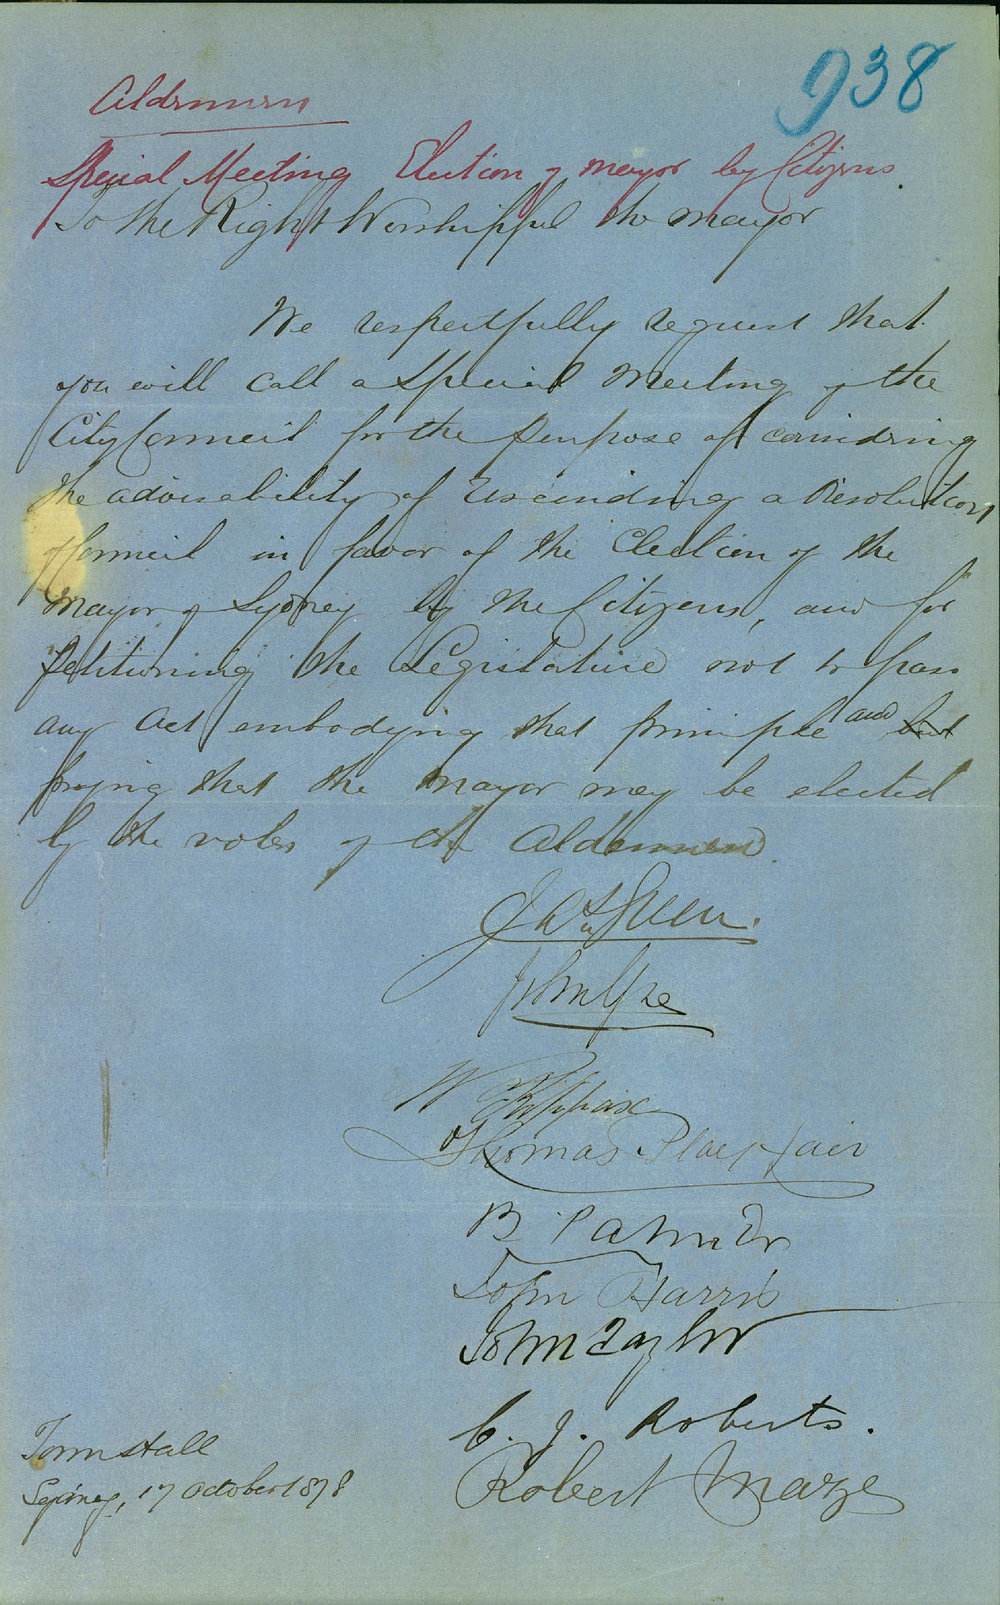 938
Aldermen
Special Meeting Election of Mayor by Citizens
To the Right Worshipful the Mayor
We respectfully request that
you will call a Special Meeting of the
City Council for the Purpose of considering
the advisability of Rescinding a Resolution
of Council in favor of the Election of the
Mayor of Sydney by the Citizens, and for
Petitioning the Legislature not to pass
any Act embodying that principle and but
praying that the Mayor may be elected
by the votes of the Aldermen.
Jas Green.
John
W
Thomas Playfair
B Palmer
John Harris
John Taylor
C. J. Roberts.
Robert Maze
Town Hall
Sydney, 17 October 1878